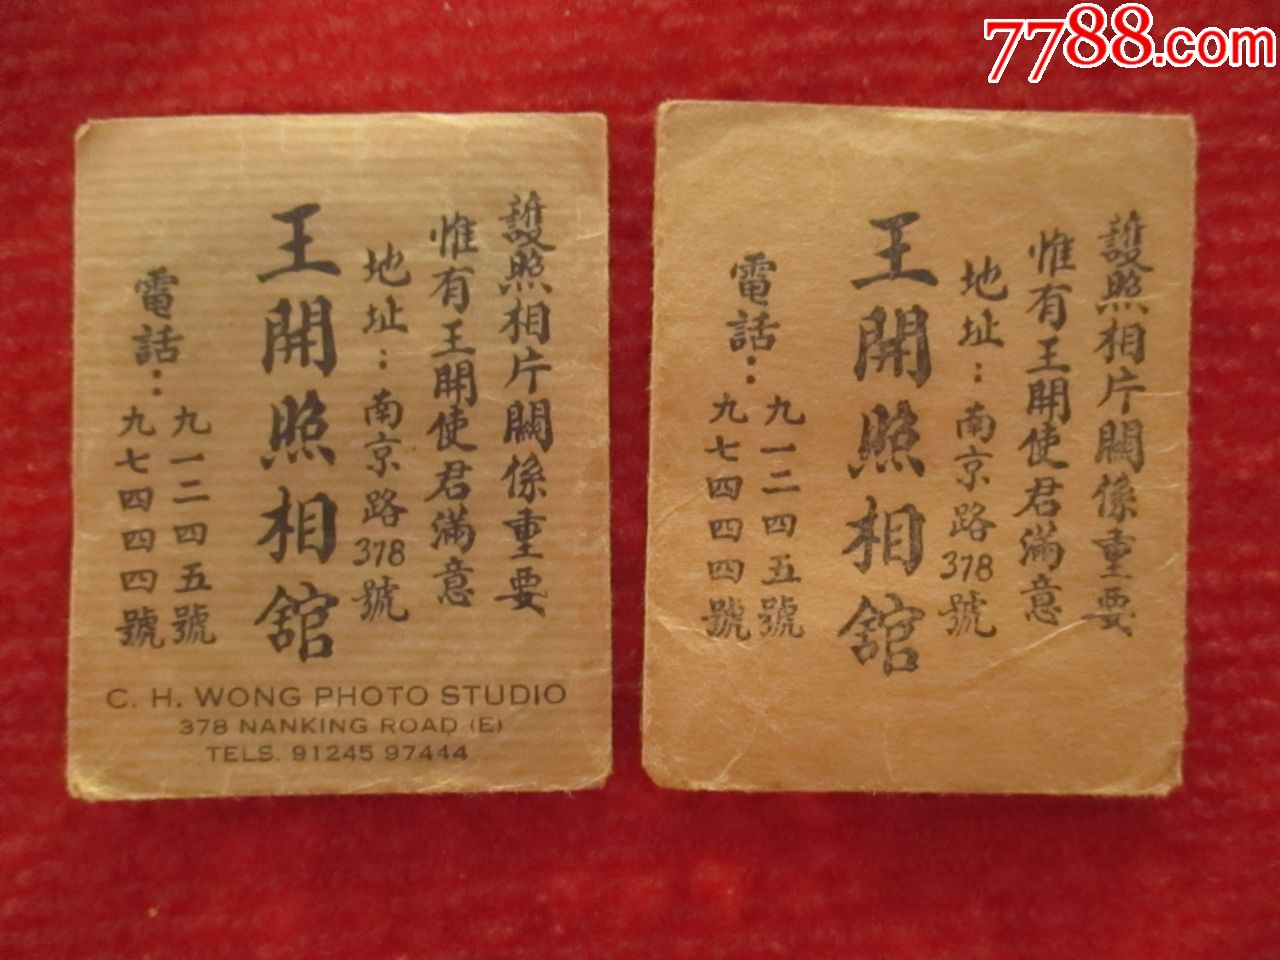 7788.com
護照相片關係重要
惟有王開使君滿意
地址：南京路378號
王開照相舘
電話：九一二四五號
九七四四四號
C. H. WONG PHOTO STUDIO
378 NANKING ROAD (E)
TELS. 91245 97444
護照相片關係重要
惟有王開使君滿意
地址：南京路378號
王開照相舘
電話：九一二四五號
九七四四四號